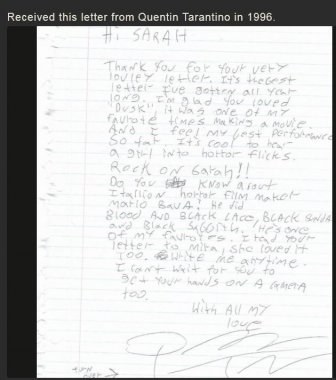 Received this letter from Quentin Tarantino in 1996.
Hi SARAH
THANK YOU FOR YOUR VERY
LOVLEY LETTER. IT'S THE BEST
LETTER I'VE GOTTEN ALL YEAR
LONG. I'M GLAD YOU LOVED
"DUSK", IT WAS ONE OF MY
FAVORITE TIMES MAKING A MOVIE.
AND I FEEL MY BEST PERFORMANCE
SO FAR. IT'S COOL TO HEAR
A GIRL INTO HORROR FLICKS.
ROCK ON SARAH!!
DO YOU KNOW ABOUT
ITALLION HORROR FILM MAKER
MARIO BAVA? HE DID
BLOOD AND BLACK LACE, BLACK
AND BLACK SABBITH. HE'S ONE
OF MY FAVORIES. I READ YOUR
LETTER TO MIRA, SHE LOVED IT
TOO. WRITE ME ANYTIME.
I CAN'T WAIT FOR YOU TO
GET YOUR HANDS ON A CAMERA
TOO.
WITH ALL MY
LOVE
TURN
OVER